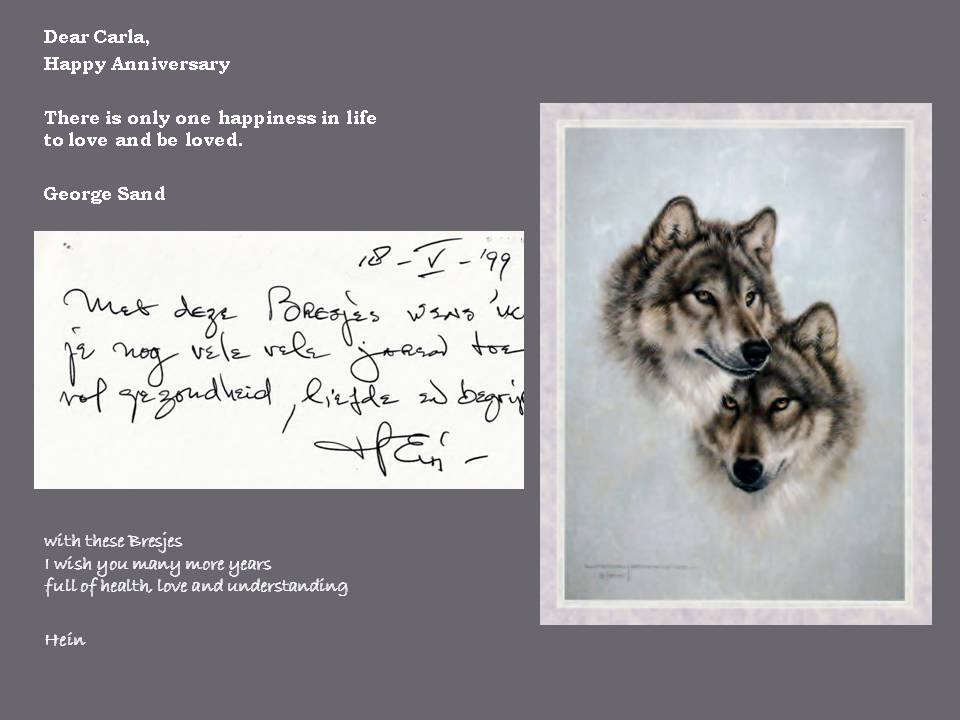 Dear Carla,
Happy Anniversary
There is only one happiness in life
to love and be loved.
George Sand
18-V-'99
Met deze Bresjes wens ik
je nog vele vele jaren toe
vol gezondheid, liefde en begrip
Hein
with these Bresjes
I wish you many more years
full of health, love and understanding
Hein